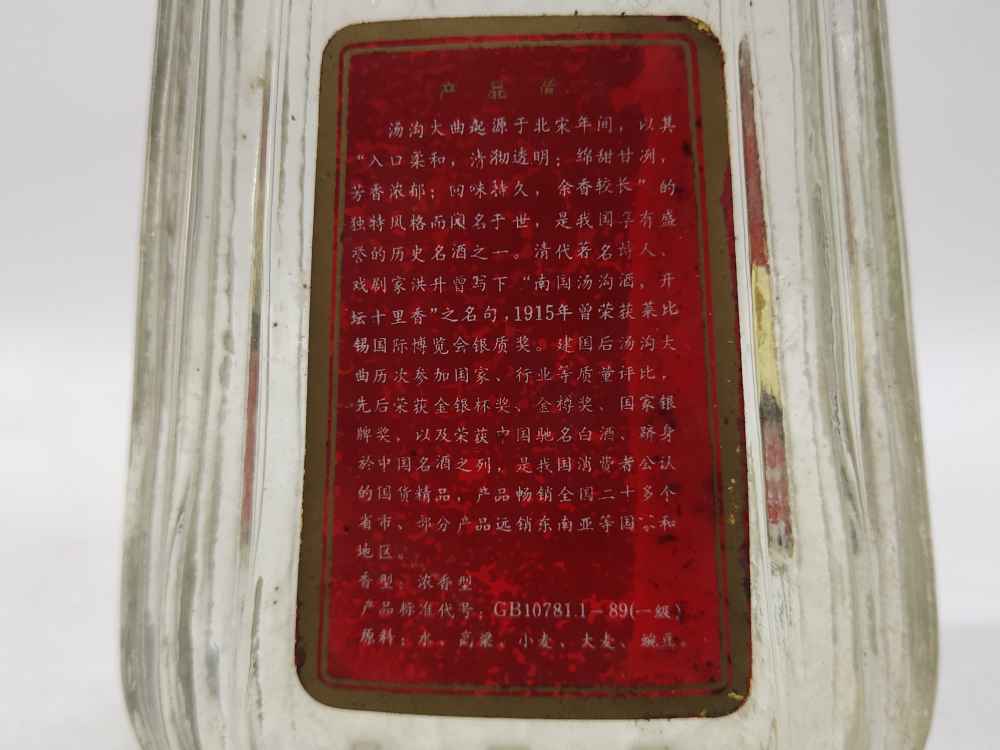 产品
汤沟大曲起源于北宋年间，以其
“入口柔和，清彻透明；绵甜甘冽，
芳香浓郁；回味持久，余香较长”的
独特风格而闻名于世，是我国享有盛
誉的历史名酒之一。清代著名诗人、
戏剧家洪升曾写下“南国汤沟酒，开
坛十里香”之名句，1915年曾荣获莱比
锡国际博览会银质奖。建国后汤沟大
曲历次参加国家、行业等质量评比，
先后荣获金银杯奖、金樽奖、国家银
牌奖，以及荣获中国驰名白酒、跻身
於中国名酒之列，是我国消费者公认
的国货精品，产品畅销全国二十多个
省市、部分产品远销东南亚等国家和
地区。
香型：浓香型
产品标准代号：GB10781.1－89(一级)
原料：水、高粱、小麦、大麦、豌豆。